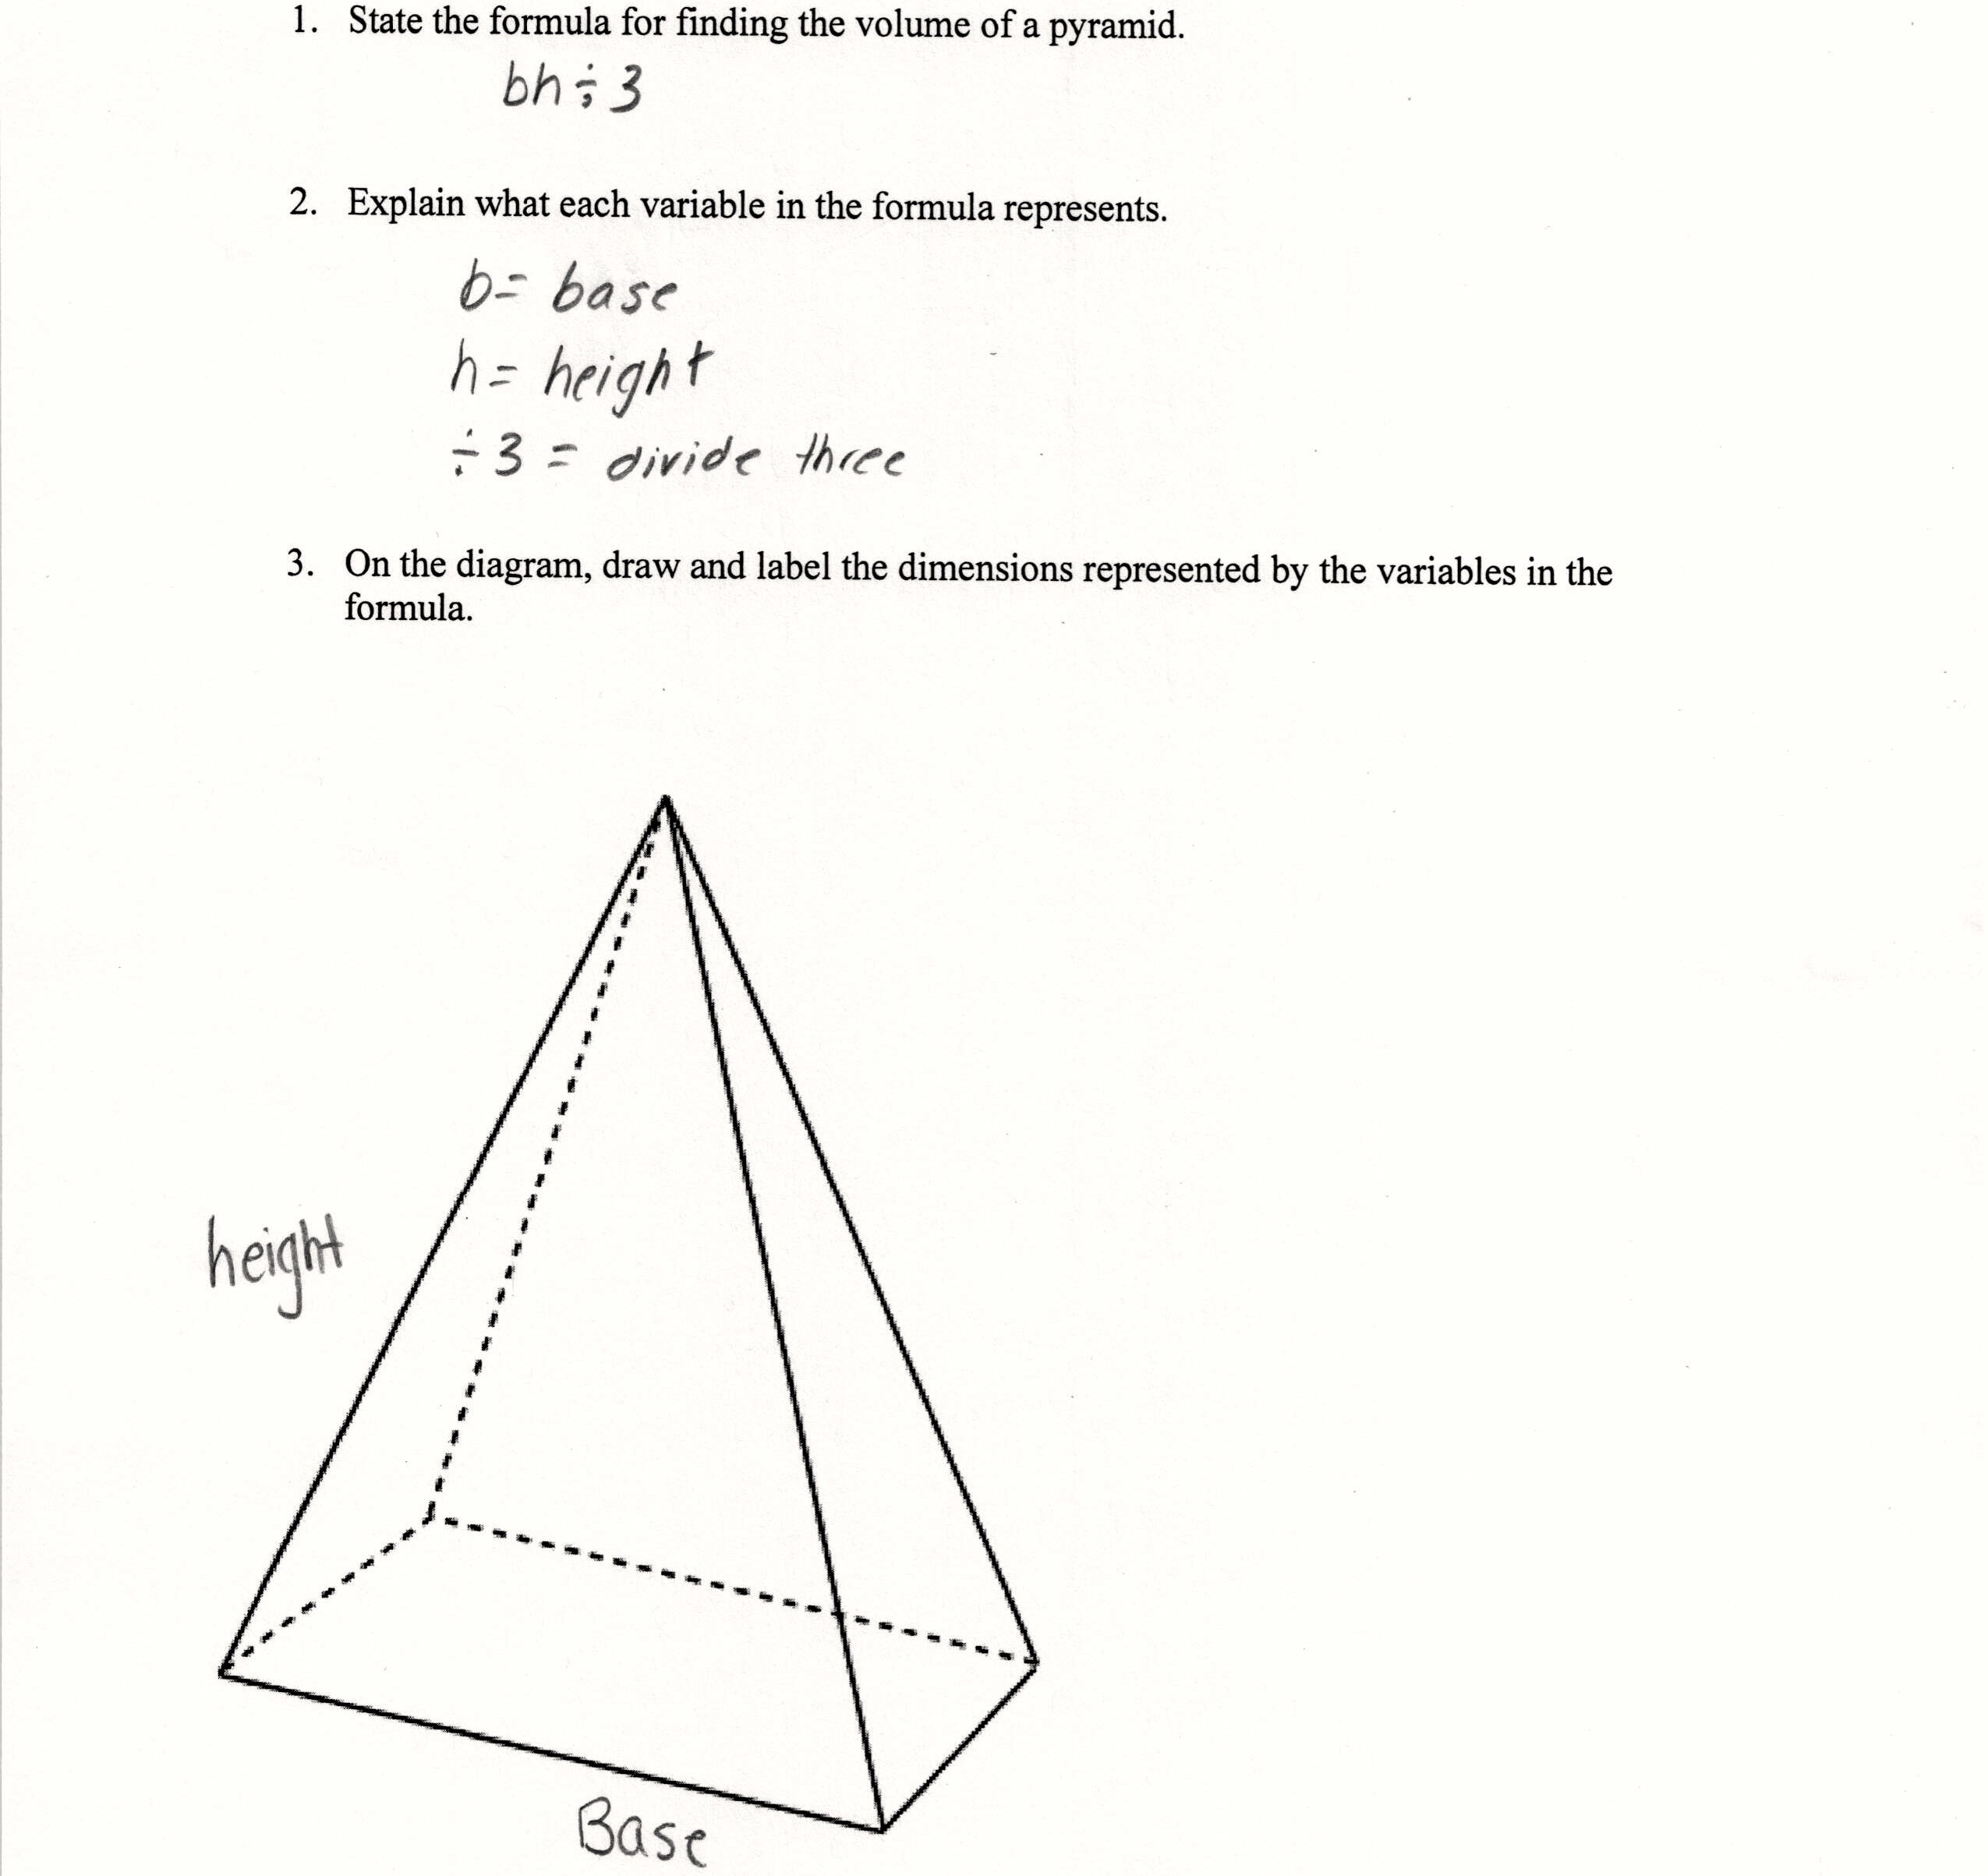 1. State the formula for finding the volume of a pyramid.
bh÷3
2. Explain what each variable in the formula represents.
b= base
h= height
÷3 = divide three
3. On the diagram, draw and label the dimensions represented by the variables in the
formula.
height
Base